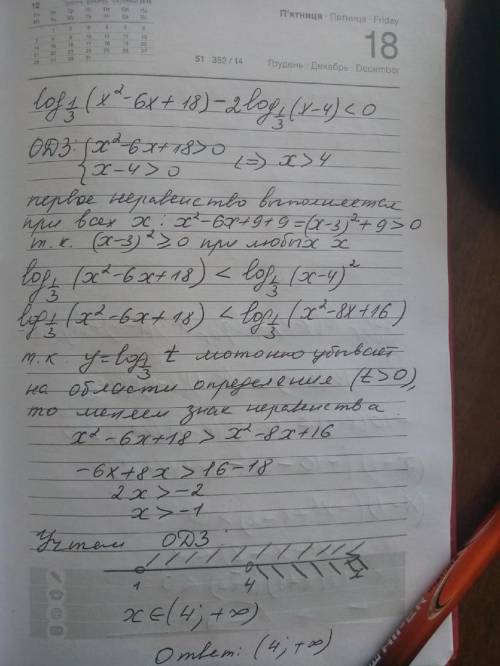 П'ятниця · Пятница · Friday
18
51 352/14 Грудень · Декабрь · December
log_{1/3}(x²-6x+18)-2log_{1/3}(x-4)<0
ОДЗ: {x²-6x+18>0
x-4>0 <=> x>4
первое неравенство выполняется
при всех x: x²-6x+9+9=(x-3)²+9>0
т.к. (x-3)²≥0 при любых x
log_{1/3}(x²-6x+18)<log_{1/3}(x-4)²
log_{1/3}(x²-6x+18)<log_{1/3}(x²-8x+16)
т.к y=log_{1/3} t мотонно убывает
на области определения (t>0),
то меняем знак неравенства.
x²-6x+18>x²-8x+16
-6x+8x>16-18
2x>-2
x>-1
Учтем ОДЗ:
1 4 x
x∈(4;+∞)
Ответ: (4;+∞)